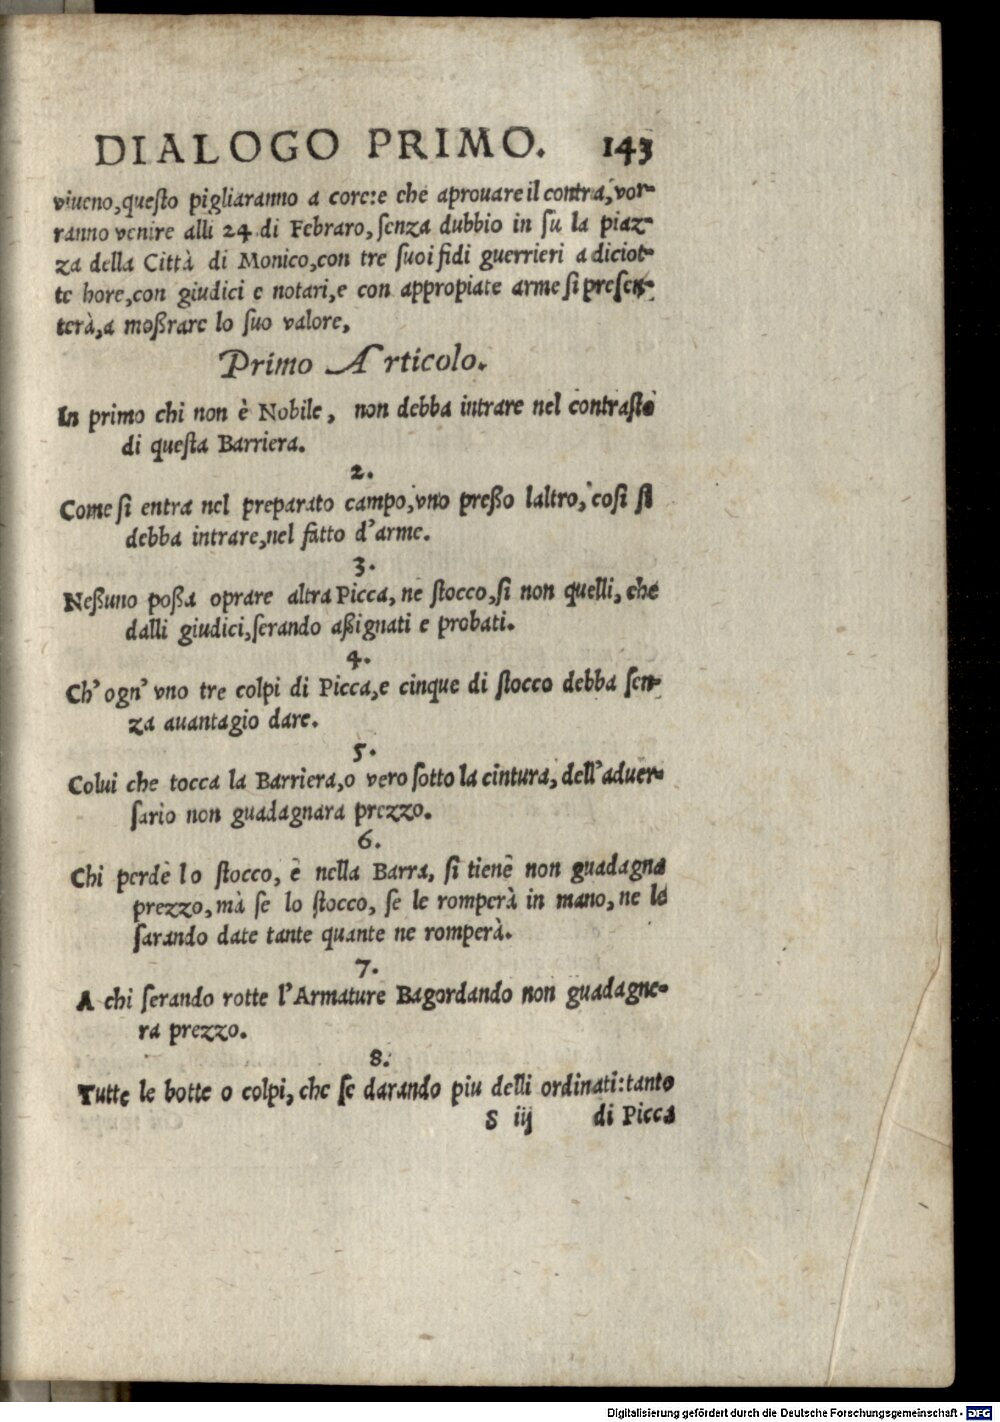 DIALOGO PRIMO. 143
viueno,questo pigliaranno a core:e che aprouare il contra,vor-
ranno venire alli 24 di Febraro,senza dubbio in su la piaz-
za della Città di Monico,con tre suoi fidi guerrieri a diciot-
te hore,con giudici e notari,e con appropiate arme si presen-
terà,a moßrare lo suo valore,
Primo Articolo.
In primo chi non è Nobile, non debba intrare nel contrasto
di questa Barriera.
2.
Come si entra nel preparato campo,vno preßo laltro,cosi si
debba intrare,nel fatto d'arme.
3.
Neßuno poßa oprare altra Picca, ne stocco,si non quelli, che
dalli giudici,serando aßignati e probati.
4.
Ch'ogn'vno tre colpi di Picca,e cinque di stocco debba sen-
za auantagio dare.
5.
Colui che tocca la Barriera,o vero sotto la cintura, dell'aduer-
sario non guadagnara prezzo.
6.
Chi perde lo stocco, e nella Barra, si tiene non guadagna
prezzo,mà se lo stocco, se le romperà in mano, ne le
sarando date tante quante ne romperà.
7.
A chi serando rotte l'Armature Bagordando non guadagne-
ra prezzo.
8.
Tutte le botte o colpi, che se darando piu delli ordinati:tanto
S iij di Picca
Digitalisierung gefördert durch die Deutsche Forschungsgemeinschaft - DFG